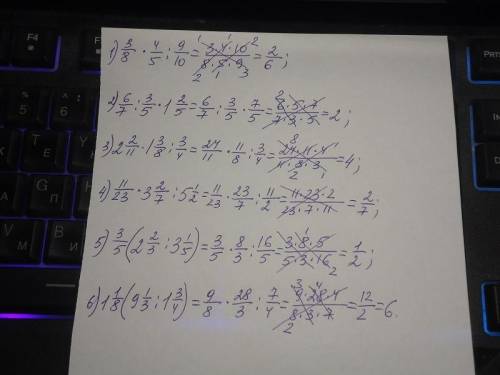 1) 3/8 · 4/5 : 9/10 = 3·4·10/8·5·9 = 2/6;
2) 6/7 : 3/5 · 1 2/5 = 6/7 : 3/5 · 7/5 = 6·5·7/7·3·5 = 2;
3) 2 2/11 · 1 3/8 : 3/4 = 24/11 · 11/8 : 3/4 = 24·11·4/11·8·3 = 4;
4) 11/23 · 3 2/7 : 5 1/2 = 11/23 · 23/7 : 11/2 = 11·23·2/23·7·11 = 2/7;
5) 3/5 (2 2/3 : 3 1/5) = 3/5 · 8/3 : 16/5 = 3·8·5/5·3·16 = 1/2;
6) 1 1/8 (9 1/3 : 1 3/4) = 9/8 · 28/3 : 7/4 = 9·28·4/8·3·7 = 12/2 = 6.